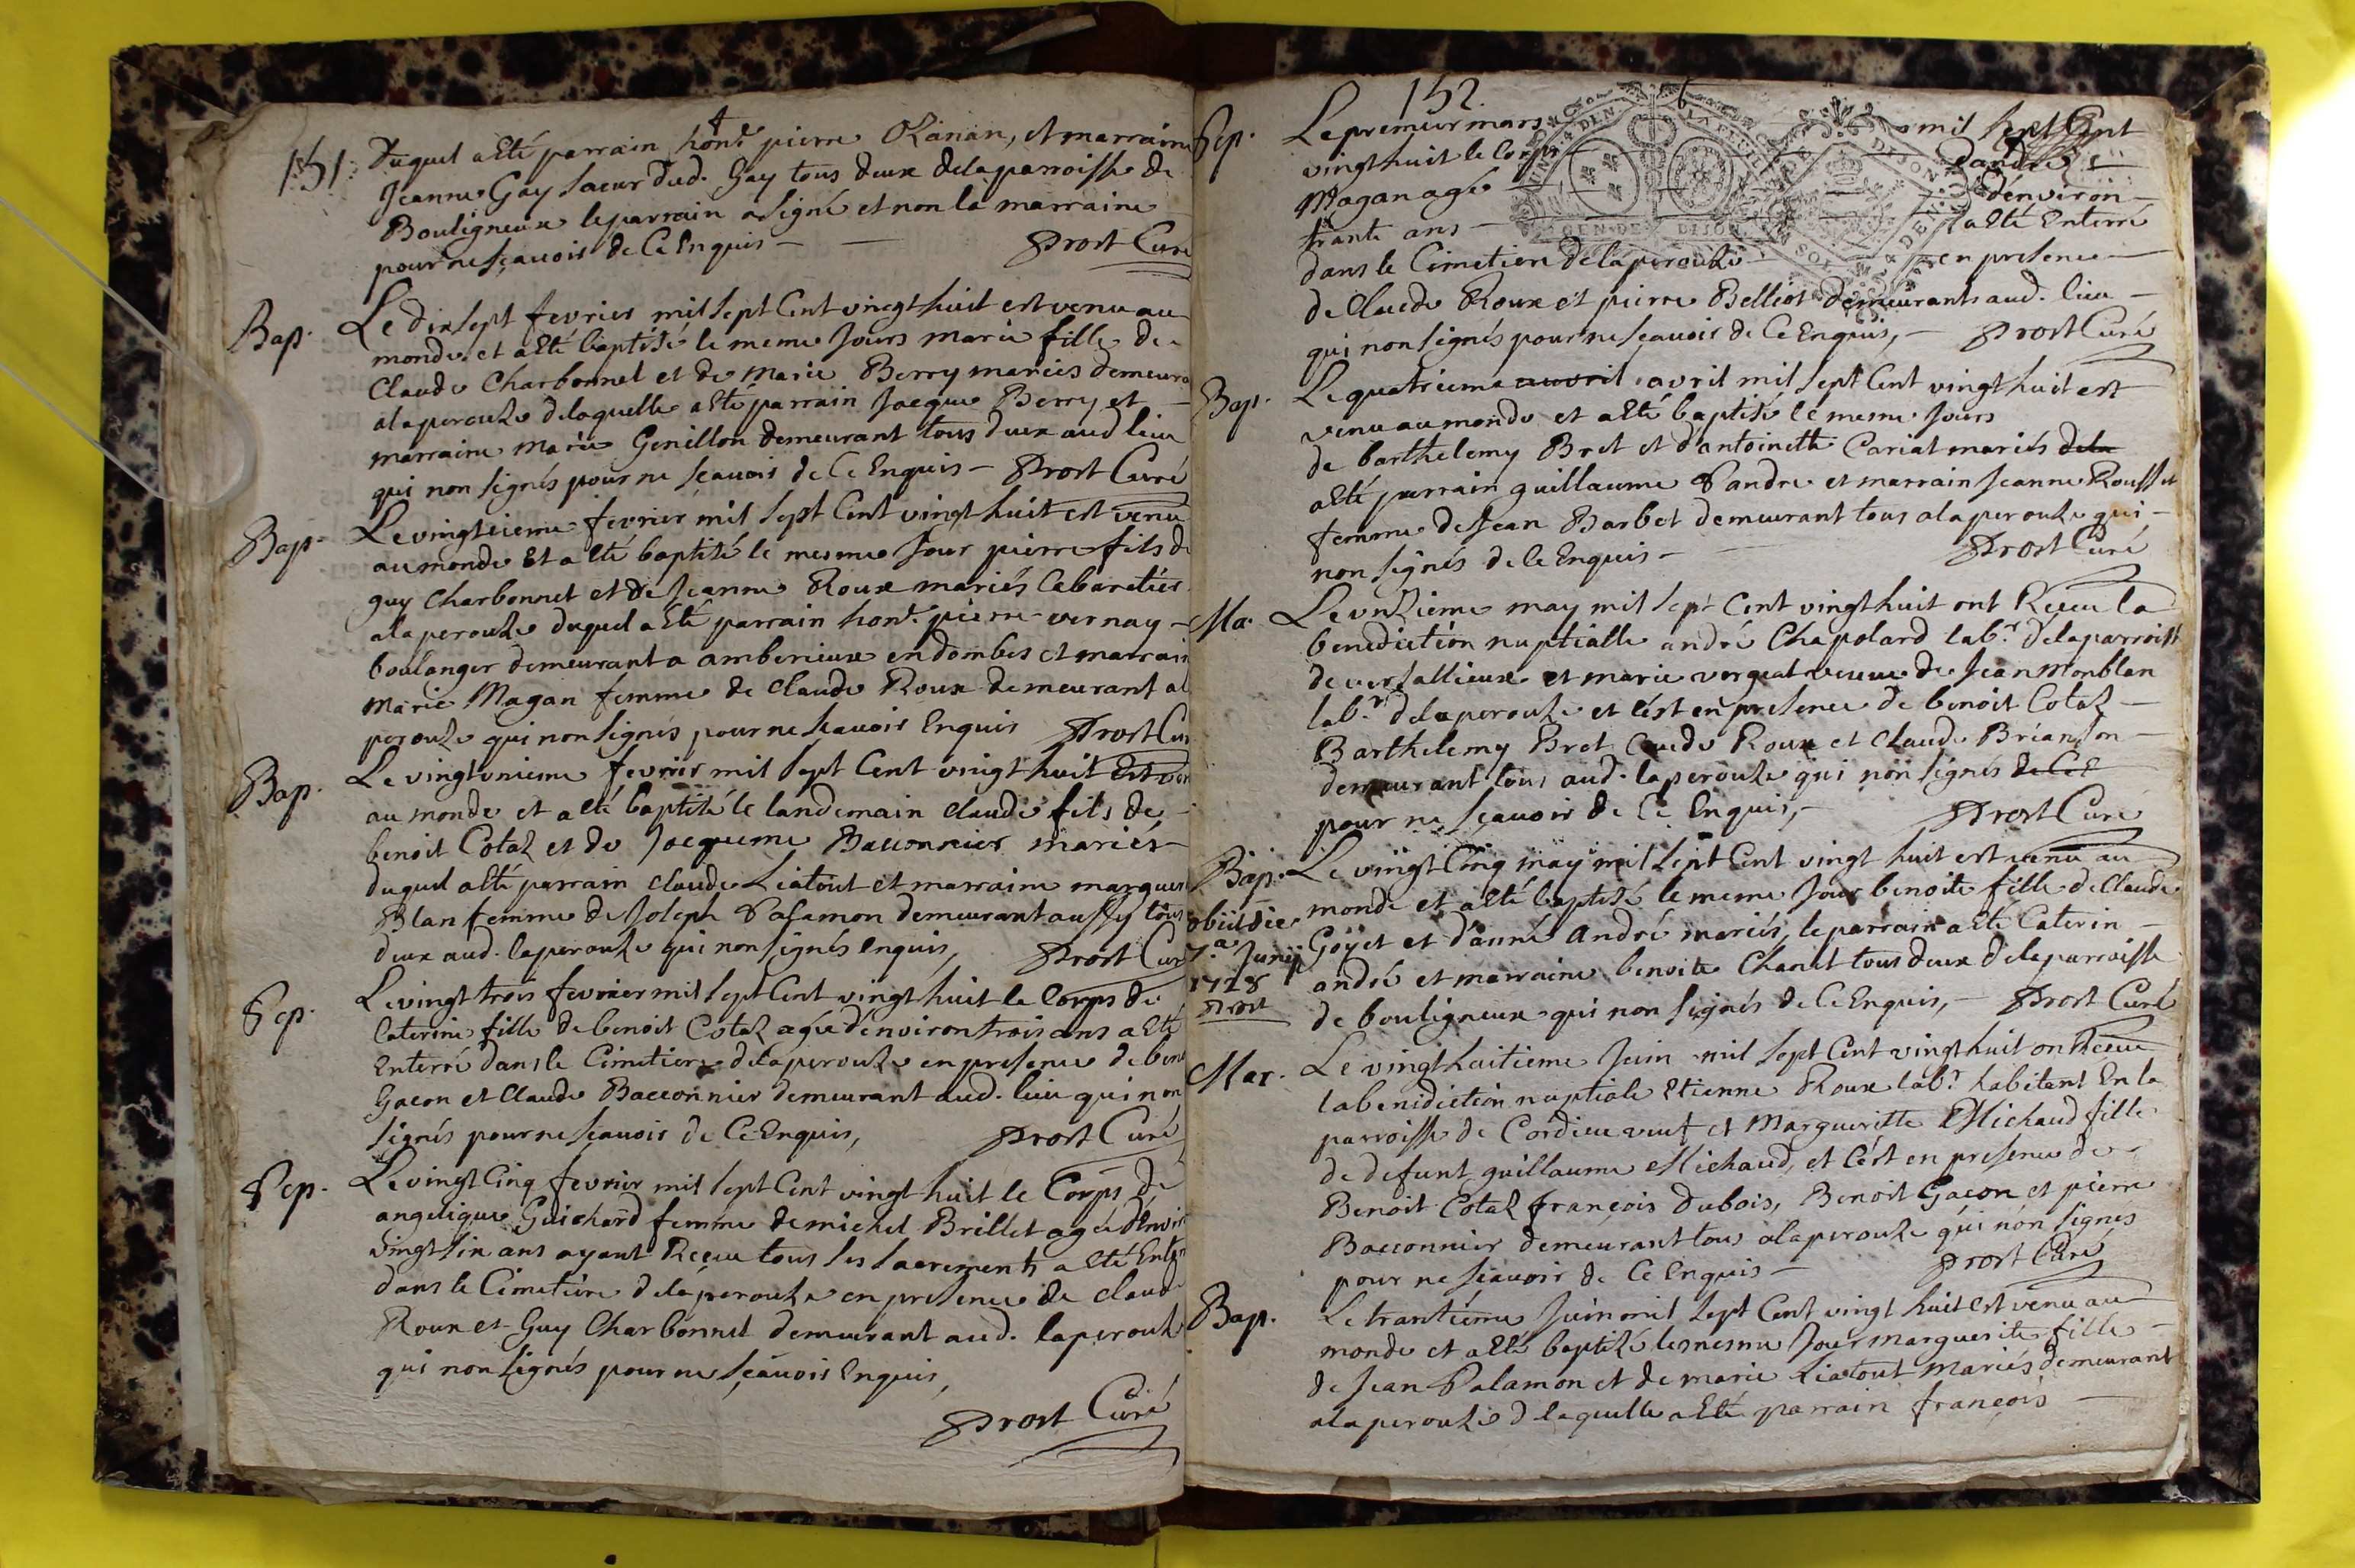 151.
4
duquel a été parrain hon.e pierre Ozanan, et marraine
Jeanne Gay saeur dud. Gay tous deux de la parroisse de
Bouligneux le parrain a signé et non la marraine
pour ne sçauoir de Ce Enquis — — Prost Curé
Bap. Le dix sept fevrier mil sept Cent vingt huit est venu au
monde et a été baptisé le meme Jours marie fille de
Claude Charbonnet et de Marie Berry mariés demeura
a laperouze de laquelle a été parrain Jacque Berry et —
marraine marie Genillon demeurant tous deux aud lieu
qui non signés pour ne sçauoir de Ce Enquis — Prost Curé
Bap. Le vingtieme fevrier mil sept Cent vingt huit est venu
au monde Et a été baptisé le mesme Jour pierre fils de
guy Charbonnet et de Jeanne Roux mariés Cabaretier
a laperouze duquel a été parrain hon.e pierre vernay —
boulanger demeurant a amberieux en dombes et marrain
Marie Magan femme de Claude Roux demeurant a la
perouze qui non signés pour ne sçauoir Enquis Prost Cur
Bap. Le vingt vnieme fevrier mil sept Cent vingt huit Est ven
au monde et a été baptisé le landemain Claude fils de
benoit Cotaz et de Jacqueme Bacconnier mariés
duquel a été parrain Claude Liatout et marraine marguer
Blan femme de Joseph Palamon demeurant aussy tous
deux aud. laperouze qui non signés enquis, Prost Cur
Sep. Le vingt trois fevrier mil sept Cent vingt huit le Corps de
Caterine fille de benoit Cotaz agée d'environ trois ans a été
Enterré dans le Cimetiere de laperouze en presence de beno
Gacon et Claude Bacconnier demeurant aud. lieu qui non
signés pour ne sçauoir de Ce Enquis, Prost Curé
Sep. Le vingt Cinq fevrier mil sept Cent vingt huit le Corps de
angelique Guichard femme de michel Brillet agée d'Envir
vingt six ans ayant Receu tous les sacrements a été Enter
dans le Cimetiere de laperouze en presence de claude
Roux et Guy Charbonnet demeurant aud. laperouz
qui non signés pour ne sçauoir Enquis,
Prost Curé
152.
6
Sep. Le premier mars mil sept Cent
vingt huit le Corps d'andré
Magan agé d'environ —
trante ans — a été Enterré
dans le Cimetiere de laperouze — en presence —
de Claude Roux et pierre Belliot demeurants aud. lieu —
qui non signés pour ne sçauoir de Ce Enquis, — Prost Curé
Bap. Le quatrieme auvril avril mil sept Cent vingt huit est
venu au monde et a été baptisé le meme Jours
de barthelemy Bret et d'antoinette Cariat mariés dela
a été parrain guillaume Pandre et marrain Jeanne Rousset
femme de Jean Barbet demeurant tous a laperouze qui —
non signés de Ce Enquis — Prost Curé
Ma. Le vnzieme may mil sept Cent vingt huit ont Receu la
benediction nuptialle andré Chapolard lab.r de la parroiss
de versallieux et marie vergeat veuue de Jean Monblan
lab.r de laperouze et c'est en presence de benoit Cotaz —
Barthelemy Bret Claude Roux et Claude Brianson —
demeurant tous aud. laperouze qui non signés de Ce E
pour ne sçauoir de Ce Enquis, — Prost Curé
Bap. Le vingt Cinq may mil sept Cent vingt huit est venu au
monde et a été baptisé le meme Jour benoite fille de Claude
Goyet et d'anne André mariés, le parrain a été Caterin —
andré et marraine benoite Chanel tous deux de la parroisse
de bouligneux qui non signés de Ce Enquis, — Prost Curé
obiit die
7.a Junij
1728
Prost
Mar. Le vingt huitieme Juin mil sept Cent vingt huit on Receu
la benidiction nuptiale Etienne Roux lab.r habitant En la
parroisse de Cordieu veuf et Margueritte Michaud fille
de defunt guillaume Michaud, et C'est en presence de
Benoit Cotaz françois dubois, Benoit Gacon et pierre
Bacconnier demeurant tous a laperouze qui non signes
pour ne sçauoir de Ce Enquis — Prost Curé
Bap. Le trantieme Juin mil sept Cent vingt huit est venu au
monde et a été baptisé le mesme Jour marguerite fille —
de Jean Palamon et de marie Liatout mariés demeurant
a laperouze de laquelle a été parrain françois —